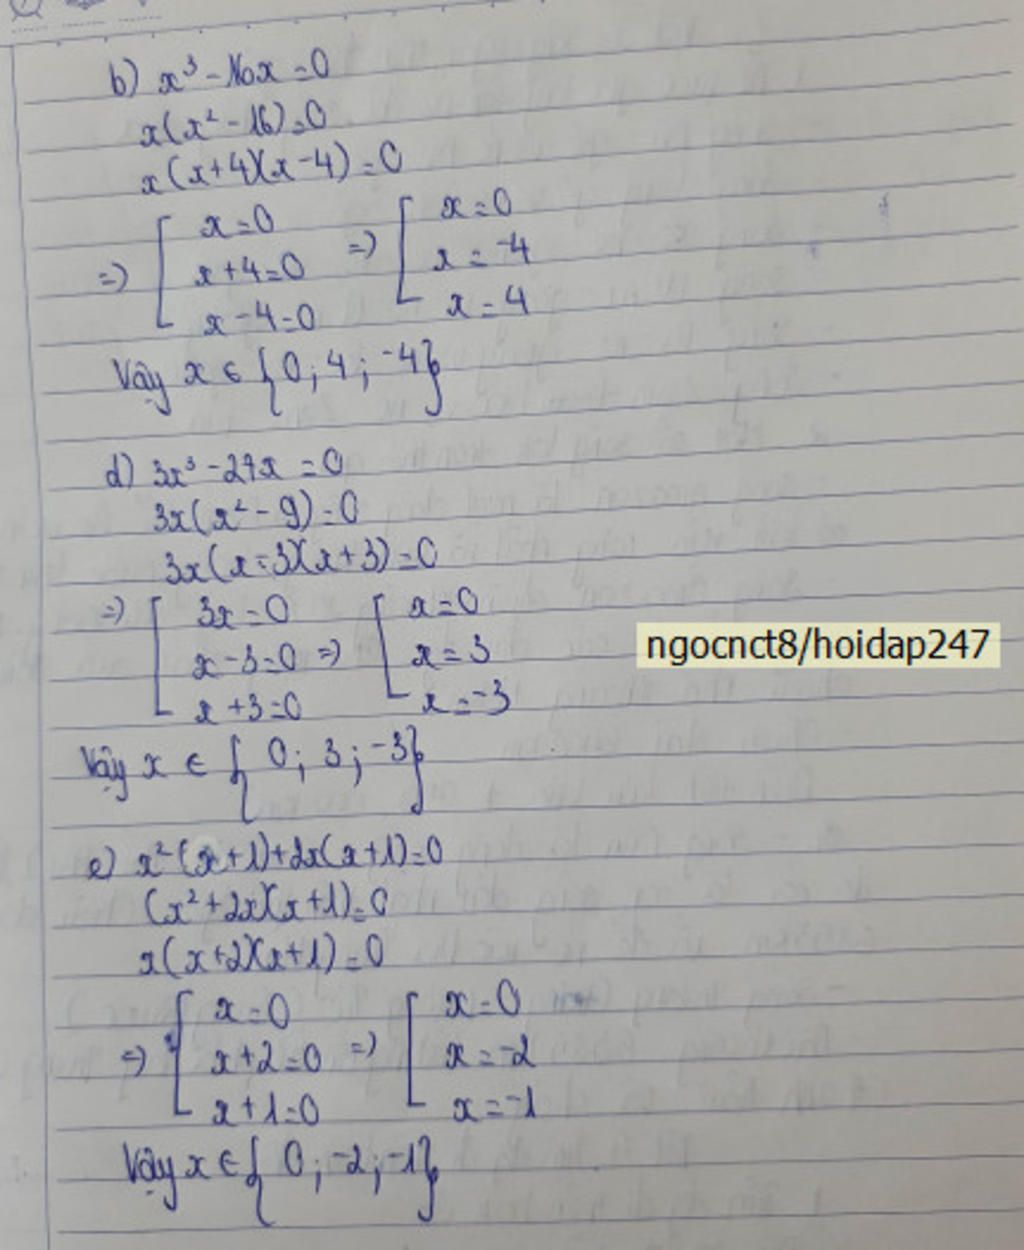 b) x³ - 16x = 0
x(x² - 16) = 0
x(x+4)(x-4) = 0
=> [ x = 0 => [ x = 0
x+4=0 x = -4
x-4=0 x = 4
Vậy x ∈ {0; 4; -4}
d) 3x³ - 27x = 0
3x(x² - 9) = 0
3x(x-3)(x+3) = 0
=> [ 3x = 0 [ x = 0
x-3=0 => x = 3
x+3=0 x = -3
ngocnct8/hoidap247
Vậy x ∈ {0; 3; -3}
e) x²(x+1)+2x(x+1)=0
(x²+2x)(x+1)=0
x(x+2)(x+1)=0
[ x=0 [ x=0
=> x+2=0 => x=-2
x+1=0 x=-1
Vậy x ∈ {0; -2; -1}